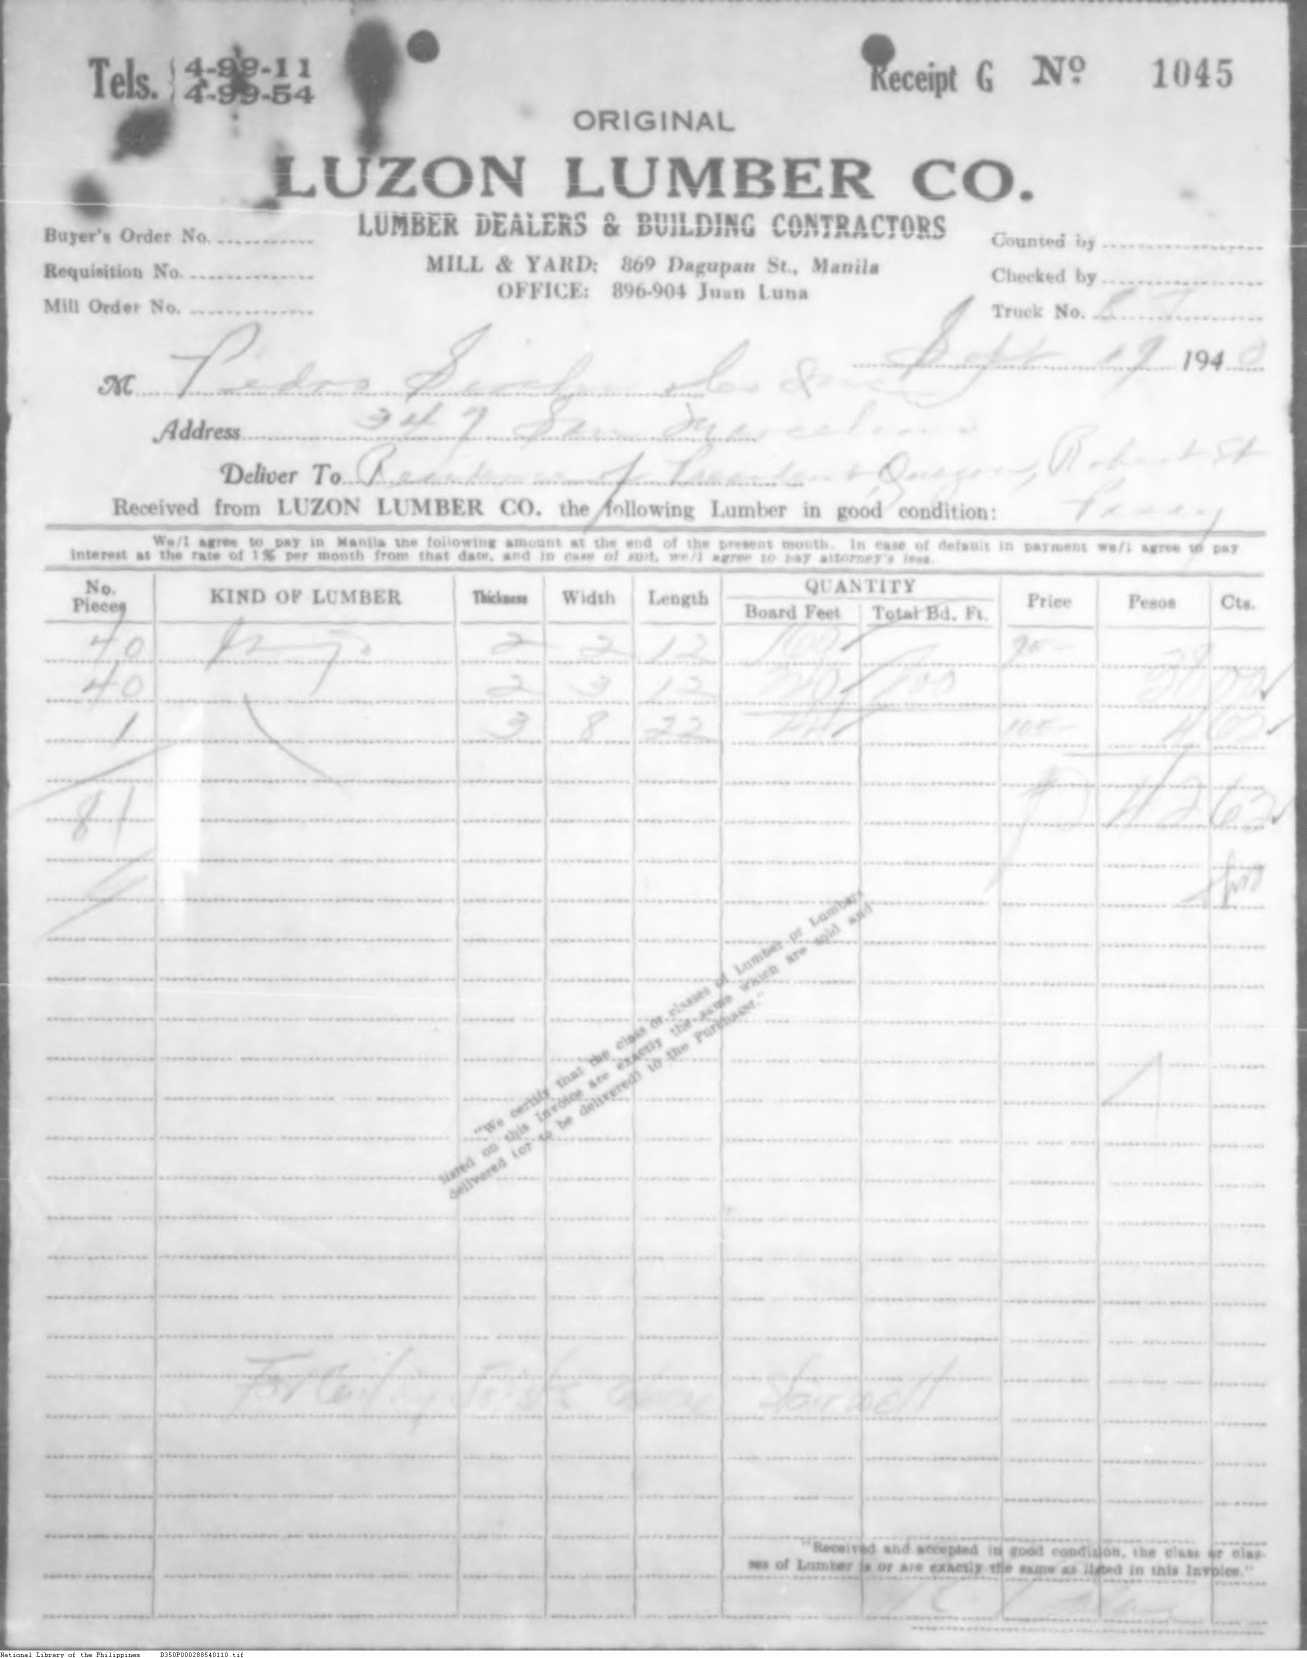 Tels. 4-99-11
4-99-54
Receipt G Nº 1045
ORIGINAL
LUZON LUMBER CO.
LUMBER DEALERS & BUILDING CONTRACTORS
MILL & YARD: 869 Dagupan St., Manila
OFFICE: 896-904 Juan Luna
Buyer's Order No.
Requisition No.
Mill Order No.
Counted by
Checked by
Truck No.
Sept 19 1940
M Pedro
Address 349 San Marcelino
Deliver To Residence of President Quezon, Robert St
Pasay
Received from LUZON LUMBER CO. the following Lumber in good condition:
We/I agree to pay in Manila the following amount at the end of the present month. In case of default in payment we/I agree to pay
interest at the rate of 1% per month from that date, and in case of suit, we/I agree to pay attorney's fees.
No. Pieces KIND OF LUMBER Thickness Width Length QUANTITY Board Feet Total Bd. Ft. Price Pesos Cts.
40 2 2 12 160
40 2 3 12 240 400
1 3 8 22 44 105- 4 62
81 42 62
"We certify that the class or classes of Lumber or Lumbers
listed on this Invoice are exactly the same which are sold and
delivered (or to be delivered) to the Purchaser."
For Ceiling Joists
"Received and accepted in good condition, the class or clas-
ses of Lumber is or are exactly the same as listed in this Invoice."
National Library of the Philippines D350P000288540110.tif